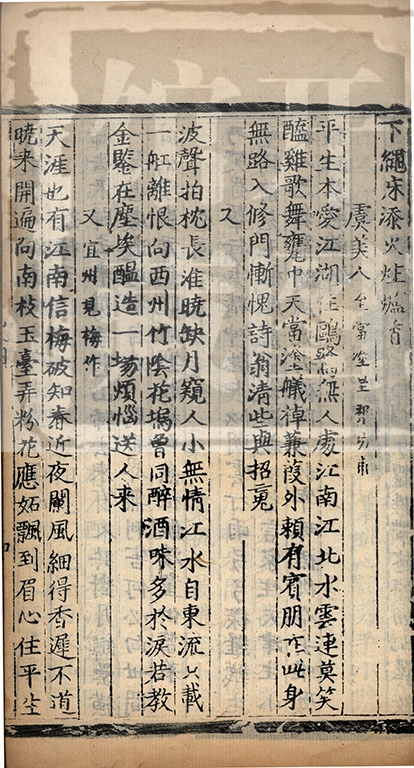 下繩床添火炷爐香
虞美人 至當塗呈郭功甫
平生本愛江湖住鷗鷺無人處江南江北水雲連莫笑
醯雞歌舞甕中天當塗艤棹蒹葭外賴有賓朋在此身
無路入修門慚愧詩翁清些與招䰟
又
波聲拍枕長淮曉缺月窺人小無情江水自東流只載
一舡離恨向西州竹陰花塢曾同醉酒味多於淚若教
金鑒在塵埃醞造一場煩惱送人来
又 宜州見梅作
天涯也有江南信梅破知春近夜闌風細得香遲不道
曉来開遍向南枝玉臺弄粉花應妬飄到眉心住平生